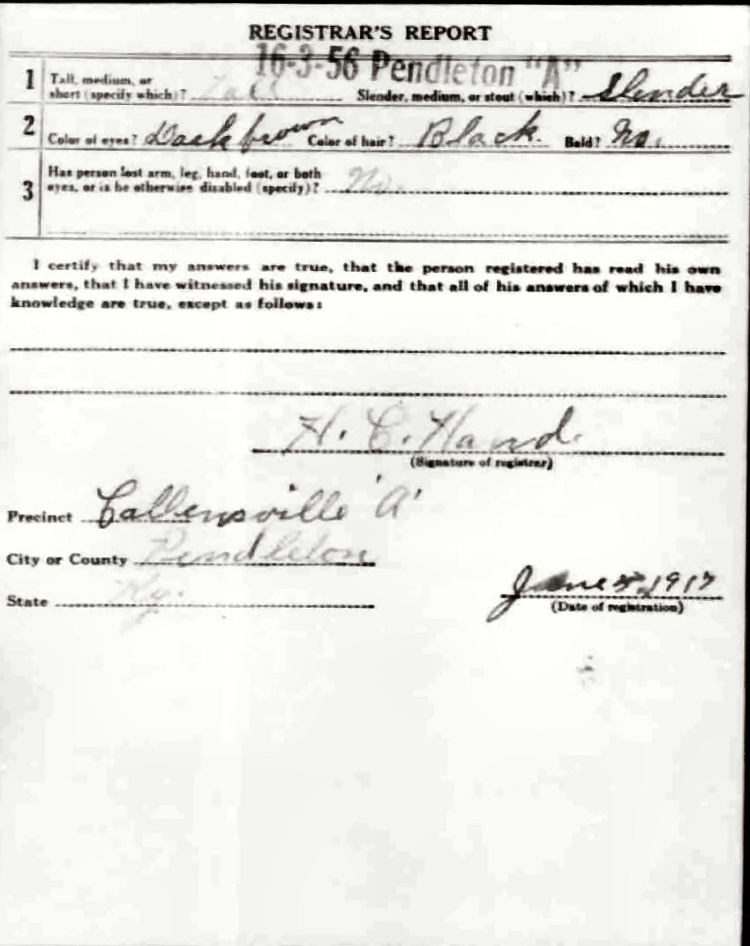 REGISTRAR'S REPORT
16-3-56 Pendleton "A"
1 Tall, medium, or
short (specify which)? Tall Slender, medium, or stout (which)? Slender
2 Color of eyes? Dark brown Color of hair? Black Bald? No.
3 Has person lost arm, leg, hand, foot, or both
eyes, or is he otherwise disabled (specify)? No.
I certify that my answers are true, that the person registered has read his own
answers, that I have witnessed his signature, and that all of his answers of which I have
knowledge are true, except as follows:
H. C. Hand.
(Signature of registrar)
Precinct Callensville 'A'
City or County Pendleton
State Ky.
June 5, 1917
(Date of registration)